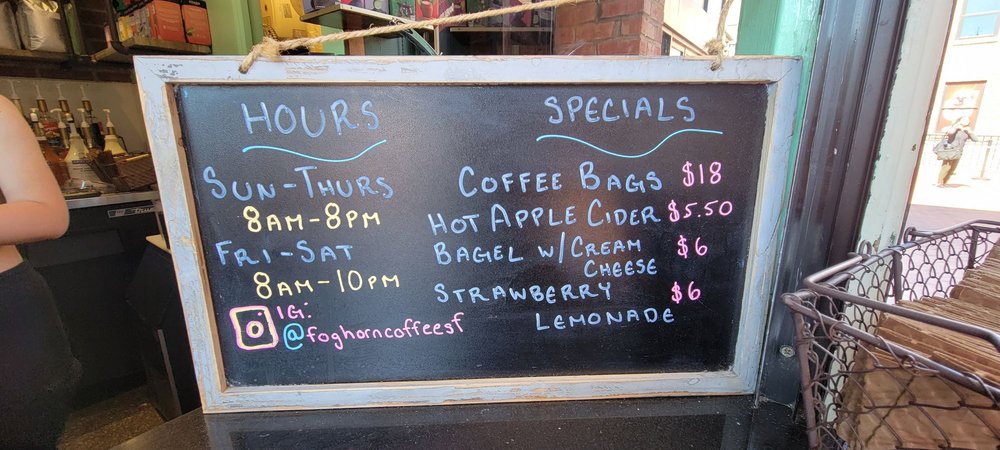 HOURS
SUN-THURS
8AM-8PM
FRI-SAT
8AM-10PM
IG:
@foghorncoffeesf
SPECIALS
COFFEE BAGS $18
HOT APPLE CIDER $5.50
BAGEL W/CREAM CHEESE $6
STRAWBERRY LEMONADE $6